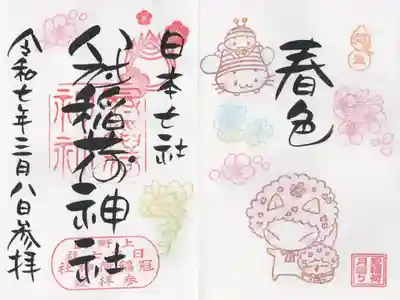 春色
日本七社
冠稲荷神社
令和七年三月八日参拝